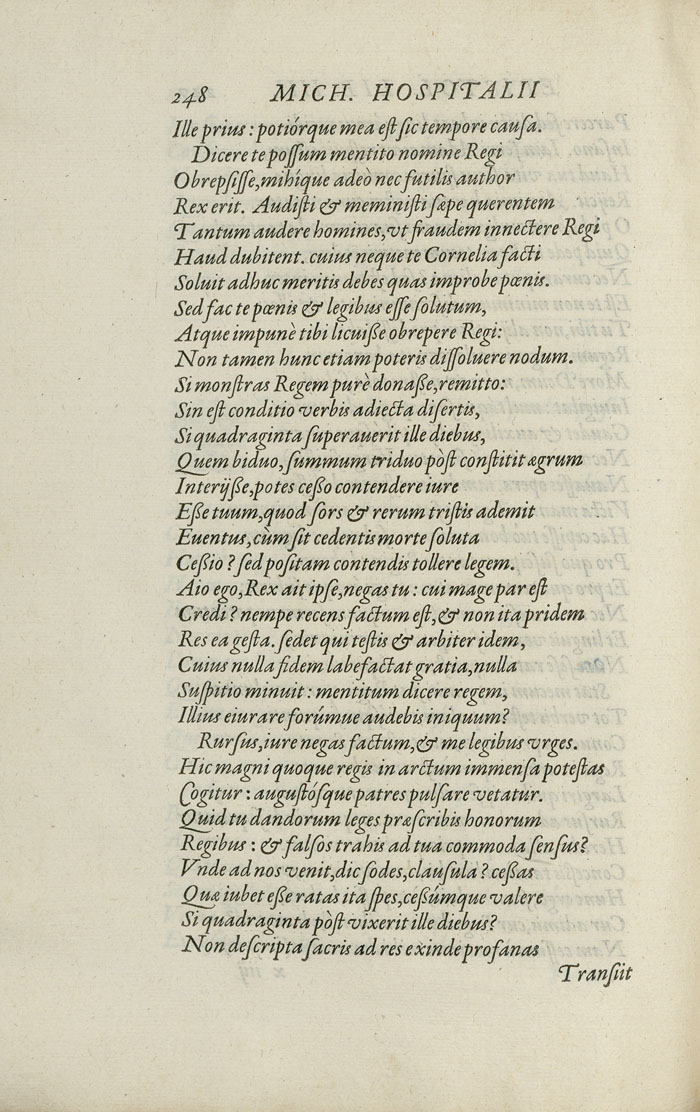 248 MICH. HOSPITALII
Ille prius : potiórque mea est sic tempore causa.
Dicere te possum mentito nomine Regi
Obrepsisse, mihíque adeò nec futilis author
Rex erit. Audisti & meministi sæpe querentem
Tantum audere homines, vt fraudem innectere Regi
Haud dubitent. cuius neque te Cornelia facti
Soluit adhuc meritis debes quas improbe pœnis.
Sed fac te pœnis & legibus esse solutum,
Atque impunè tibi licuiße obrepere Regi:
Non tamen hunc etiam poteris dissoluere nodum.
Si monstras Regem purè donaße, remitto:
Sin est conditio verbis adiecta disertis,
Si quadraginta superauerit ille diebus,
Quem biduo, summum triduo pòst constitit ægrum
Interijße, potes ceßo contendere iure
Eße tuum, quod sors & rerum tristis ademit
Euentus, cùm sit cedentis morte soluta
Ceßio ? sed positam contendis tollere legem.
Aio ego, Rex ait ipse, negas tu : cui mage par est
Credi ? nempe recens factum est, & non ita pridem
Res ea gesta. sedet qui testis & arbiter idem,
Cuius nulla fidem labefactat gratia, nulla
Suspitio minuit : mentitum dicere regem,
Illius eiurare forúmue audebis iniquum?
Rursus, iure negas factum, & me legibus vrges.
Hic magni quoque regis in arctum immensa potestas
Cogitur : augustósque patres pulsare vetatur.
Quid tu dandorum leges præscribis honorum
Regibus : & falsos trahis ad tua commoda sensus?
Vnde ad nos venit, dic sodes, clausula ? ceßas
Quæ iubet eße ratas ita spes, ceßúmque valere
Si quadraginta pòst vixerit ille diebus?
Non descripta sacris ad res exinde profanas
Transiit